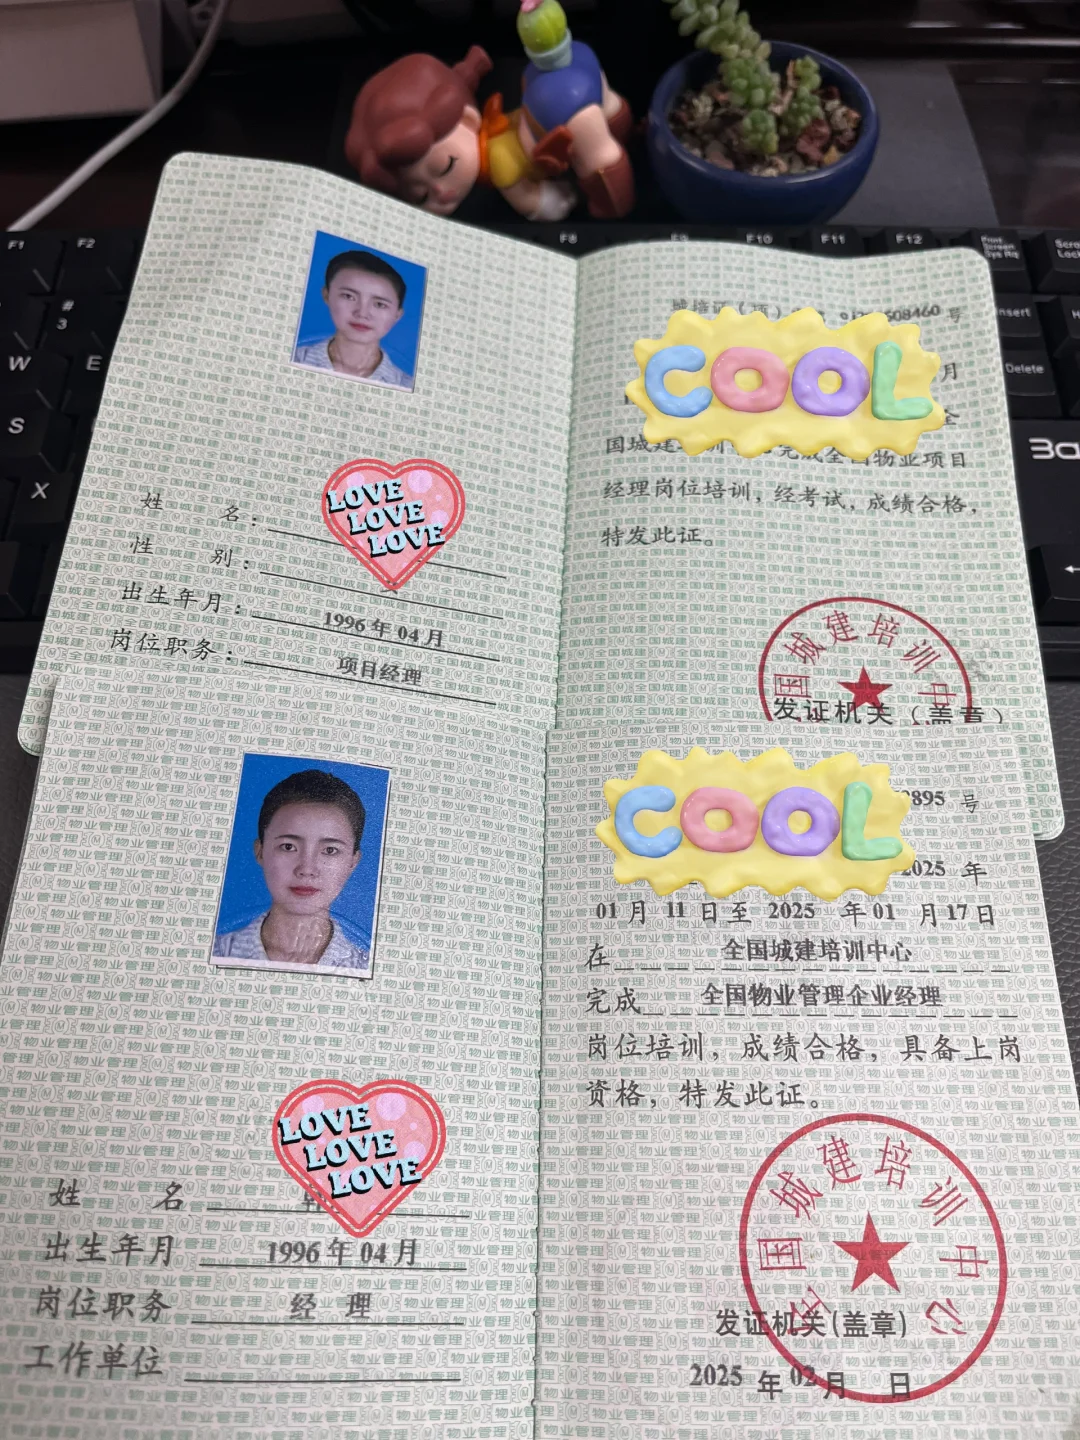 F1
F2
F8
F9
F10
F11
F12
Print
Screen
Sys Rq
#
3
W
E
S
X
Insert
Delete
号
COOL
月
全
国城建
完成全国物业项目
经理岗位培训，经考试，成绩合格，
特发此证。
LOVE
LOVE
LOVE
姓 名：
性 别：
出生年月：1996 年 04 月
岗位职务：项目经理
国城建培训中
发证机关（盖章）
COOL
895 号
2025 年
01 月 11 日至 2025 年 01 月 17 日
在 全国城建培训中心
完成 全国物业管理企业经理
岗位培训，成绩合格，具备上岗
资格，特发此证。
LOVE
LOVE
LOVE
姓 名
出生年月 1996 年 04 月
岗位职务 经 理
工作单位
全国城建培训中心
发证机关(盖章)
2025 年 02 月 日